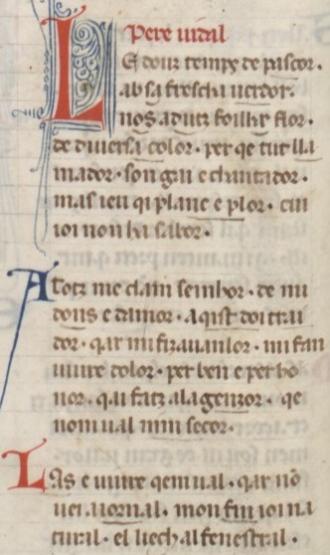 Pere uidal
LE douz temps de pascor.
ab sa frescha uerdor.
nos aduz foilhe flor.
de diuersa color. per qe tut li a
mador. son gai e chantador.
mas ieu qi planc e plor. cui
ioi non ha sabor.
A totz me clam seinhor. de mi
donz e damor. aqist doi trai
dor. qar mi fizauanlor. mi fan
uiure dolor. per ben e per ho
nor. qai fatz ala genzor. qe
nom ual nim secor.
LAs e uiure qem ual. qar nō
uei iornal. mon fin ioi na
tural. el liech al fenestral.